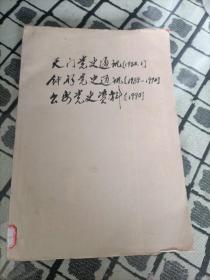 天门党史通讯(1988.1)
钟祥党史通讯(1989-1990)
公安党史资料(1990)